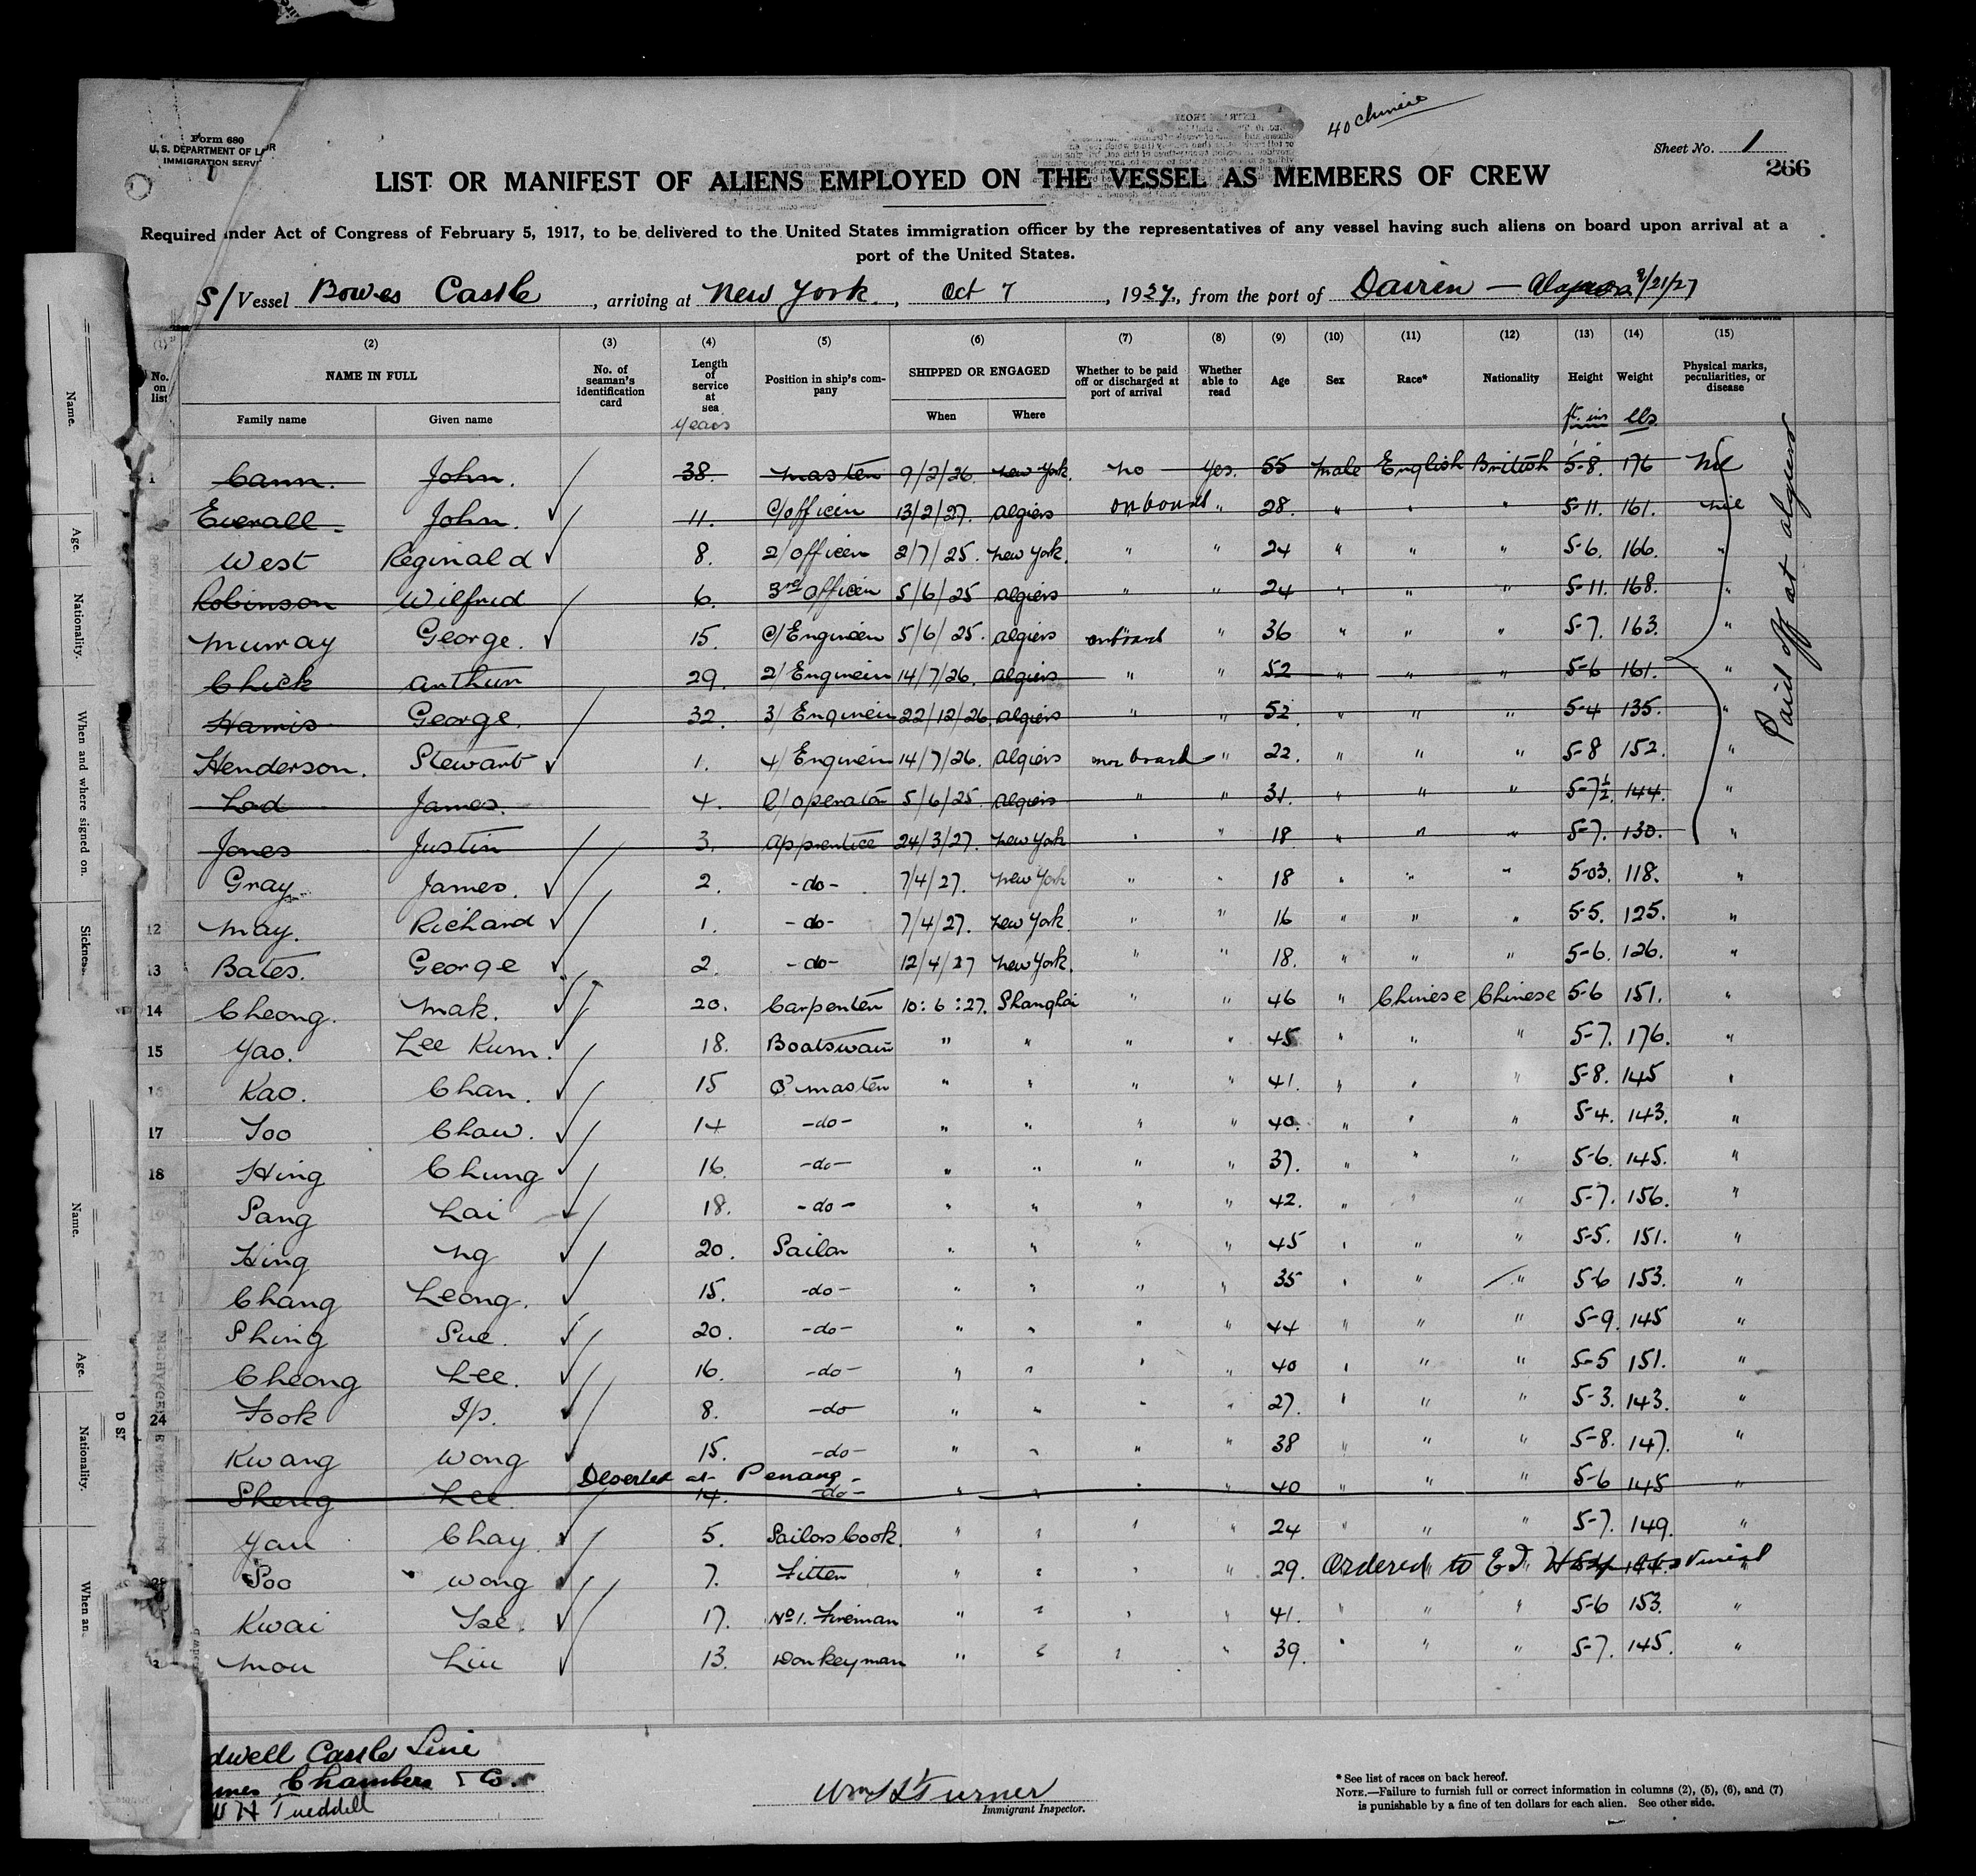 40 Chinese
Form 680
U. S. DEPARTMENT OF
IMMIGRATION
Sheet No. 1
266
LIST OR MANIFEST OF ALIENS EMPLOYED ON THE VESSEL AS MEMBERS OF CREW
Required under Act of Congress of February 5, 1917, to be delivered to the United States immigration officer by the representatives of any vessel having such aliens on board upon arrival at a
port of the United States.
S/ Vessel Bowes Castle, arriving at New York, Oct 7, 1927, from the port of Dairen — 9/21/27
(1) (2) (3) (4) (5) (6) (7) (8) (9) (10) (11) (12) (13) (14) (15)
No. on list NAME IN FULL Family name Given name No. of seaman's identification card Length of service at sea years Position in ship's company SHIPPED OR ENGAGED When Where Whether to be paid off or discharged at port of arrival Whether able to read Age Sex Race* Nationality Height ft. ins Weight lbs. Physical marks, peculiarities, or disease
1 Cann. John. 38. Master 9/2/26. New York. no Yes. 55 male English British 5-8. 176 Nil
Everall John. 11. C/officer 13/2/27. Algiers on board " 28. " " " 5-11. 161. nil
West Reginald 8. 2/officer 2/7/25. New York. " " 24 " " " 5-6. 166. "
Robinson Wilfrid 6. 3rd officer 5/6/25 Algiers " " 24 " " " 5-11. 168. "
Murray George. 15. C/Engineer 5/6/25. Algiers on board " 36 " " " 5-7. 163. "
Chick Arthur 29. 2/Engineer 14/7/26. Algiers " " 52 " " " 5-6 161. "
Harris George. 32. 3/Engineer 22/12/26. Algiers " " 52. " " " 5-4 135. "
Henderson. Stewart 1. 4/Engineer 14/7/26. Algiers on board " 22. " " " 5-8 152. "
James. 4. operator 5/6/25. Algiers " " 31. " " " 5-7½. 144. "
Jones Justin 3. Apprentice 24/3/27. New York " " 18 " " " 5-7. 130. "
Gray. James. 2. -do- 7/4/27. New York " " 18 " " " 5-03. 118. "
12 May. Richard 1. -do- 7/4/27. New York. " " 16 " " " 5-5. 125. "
13 Bates. George 2. -do- 12/4/27 New York. " " 18. " " " 5-6. 126. "
14 Cheong. Mak. 20. Carpenter 10:6:27. Shanghai " " 46 " Chinese Chinese 5-6 151. "
15 Yao. Lee Kum. 18. Boatswain " " " " 45 " " " 5-7. 176. "
16 Kao. Chan. 15 Q master " " " " 41. " " " 5-8. 145 "
17 Soo Chaw. 14 -do- " " " " 40. " " " 5-4. 143. "
18 Hing Chung 16. -do- " " " " 37. " " " 5-6. 145. "
19 Sang Lai 18. -do- " " " " 42. " " " 5-7. 156. "
20 Hing Ng 20. Sailor " " " " 45 " " " 5-5. 151. "
21 Chang Leong. 15. -do- " " " " 35 " " " 5-6 153. "
Shing Sue. 20. -do- " " " " 44 " " " 5-9. 145 "
Cheong Lee. 16. -do- " " " " 40 " " " 5-5 151. "
24 Fook Ip. 8. -do " " " " 27. " " " 5-3. 143. "
Kwang Wong 15. -do- " " " " 38 " " " 5-8. 147. "
Deserted at Penang -
Sheng Lee. 14. -do- " " " " 40 " " " 5-6 145 "
Yau Chay 5. Sailors Cook. " " " " 24 " " " 5-7. 149. "
28 Soo Wong 7. Fitter " " " " 29. Ordered to
Kwai Tse. 17. No 1. Fireman " " " " 41. " " " 5-6 153. "
Mou Liu 13. Donkeyman " " " " 39. " " " 5-7. 145. "
Paid off at Algiers
Name.
Age.
Nationality.
When and where signed on.
Sickness.
Name.
Age.
Nationality.
When an
dwell Castle Line
Chambers & Co.
W H Tweddell
Wm H Turner
Immigrant Inspector.
*See list of races on back hereof.
NOTE.—Failure to furnish full or correct information in columns (2), (5), (6), and (7)
is punishable by a fine of ten dollars for each alien. See other side.